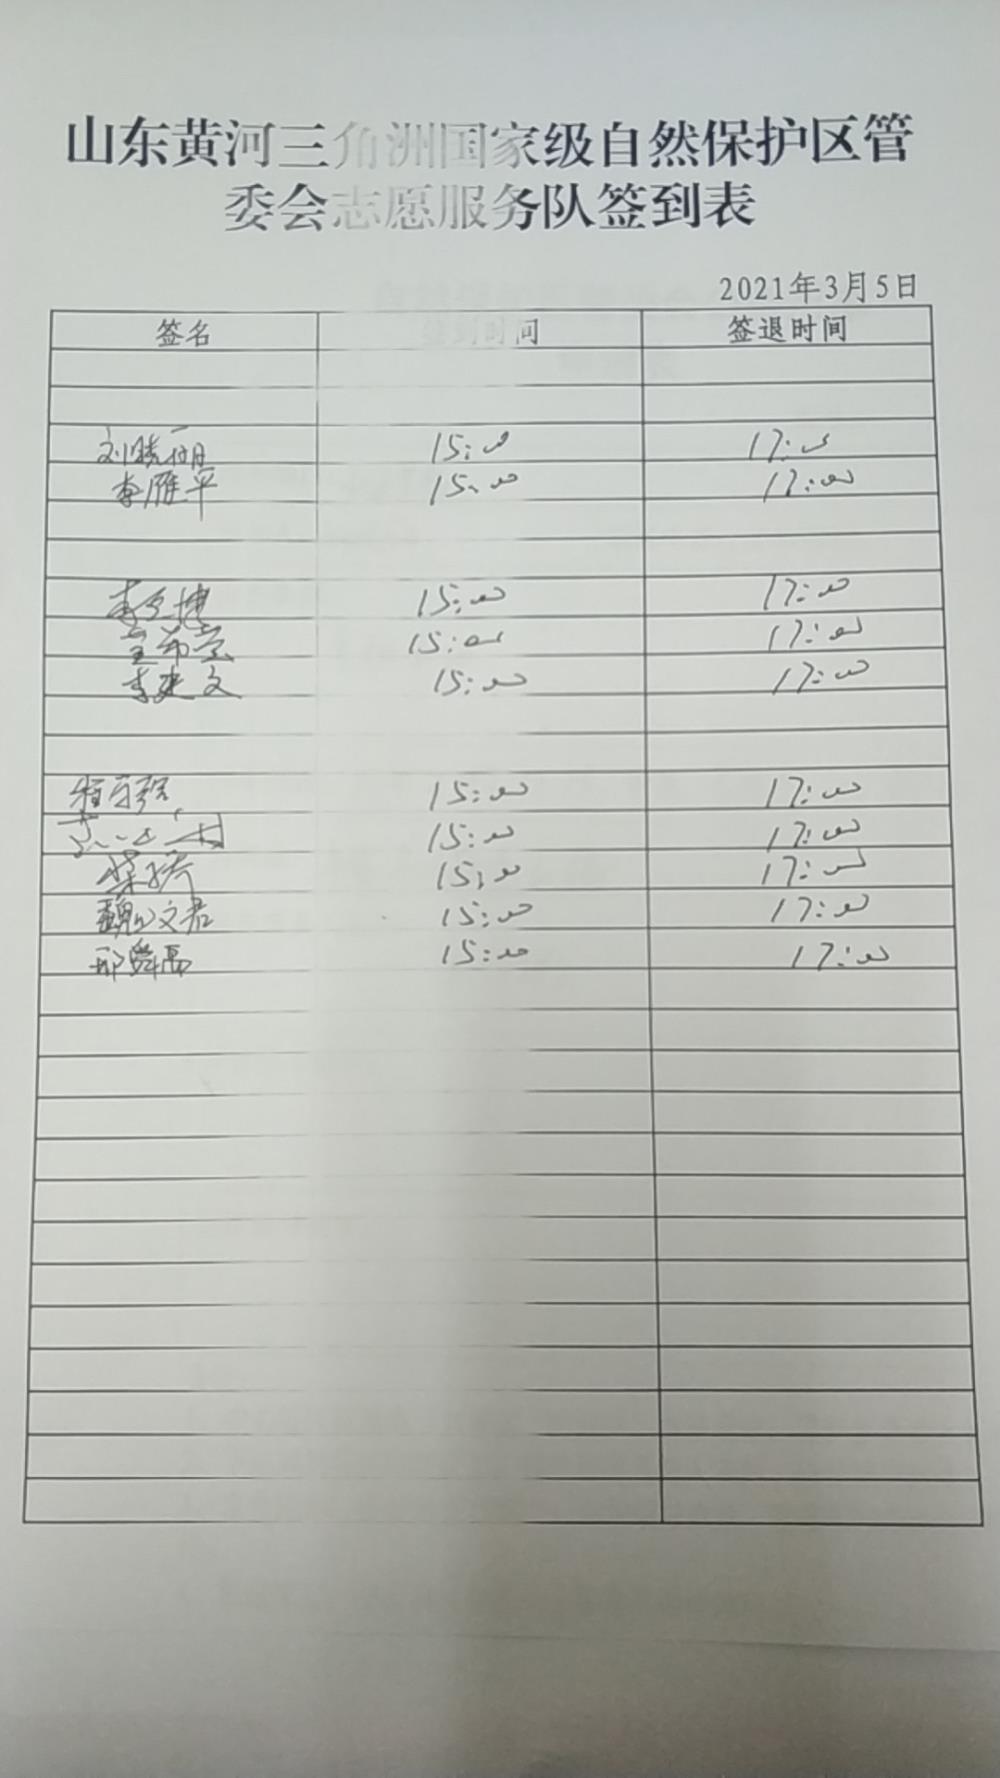 山东黄河三角洲国家级自然保护区管
委会志愿服务队签到表
2021年3月5日
签名 签到时间 签退时间
刘晓丽 15:00 17:00
李雁平 15:00 17:00
李克捷 15:00 17:00
15:00 17:00
李建文 15:00 17:00
程日强 15:00 17:00
15:00 17:00
柴娇 15:00 17:00
魏文君 15:00 17:00
邢舜禹 15:00 17:00